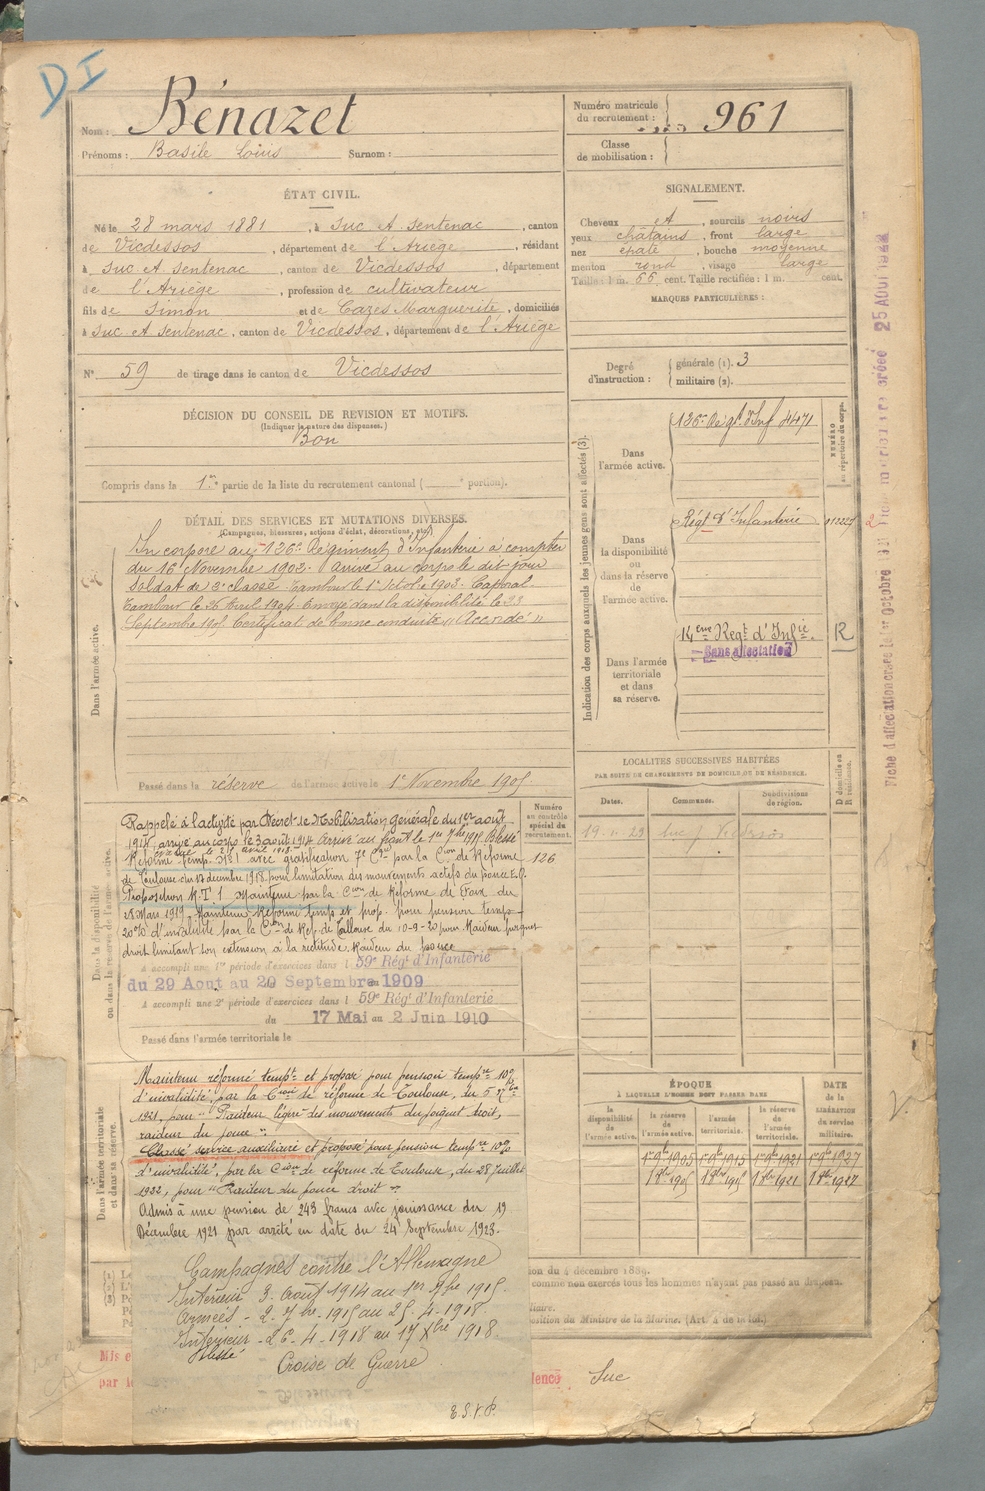 DI
Nom : Bénazet
Prénoms : Basile Loius Surnom :
Numéro matricule du recrutement : 961
Classe de mobilisation :
ÉTAT CIVIL.
Né le 28 mars 1881, à Suc et Sentenac, canton
de Vicdessos, département de l'Ariège, résidant
à Suc et Sentenac, canton de Vicdessos, département
de l'Ariège, profession de cultivateur
fils de Simon et de Cazes Marguerite, domiciliés
à Suc et Sentenac, canton de Vicdessos, département de l'Ariège
N° 59 de tirage dans le canton de Vicdessos
SIGNALEMENT.
Cheveux et, sourcils noirs
yeux châtains, front large
nez épaté, bouche moyenne
menton rond, visage large
Taille : 1 m. 66 cent. Taille rectifiée : 1 m. cent.
MARQUES PARTICULIÈRES :
Degré d'instruction : générale (1). 3
militaire (2).
DÉCISION DU CONSEIL DE REVISION ET MOTIFS.
(Indiquer la nature des dispenses.)
Bon
Compris dans la 1re partie de la liste du recrutement cantonal ( e portion).
DÉTAIL DES SERVICES ET MUTATIONS DIVERSES.
(Campagnes, blessures, actions d'éclat, décorations, etc.)
Dans l'armée active.
Incorporé au 126e Régiment d'Infanterie à compter
du 16 Novembre 1902. Arrivé au corps le dit jour
soldat de 2e classe. Tambour le 1er Octobre 1903. Caporal
Tambour le 26 Avril 1904. Envoyé dans la disponibilité le 23
Septembre 1905. Certificat de bonne conduite "Accordé"
Passé dans la réserve de l'armée active le 1er Novembre 1905.
Indication des corps auxquels les jeunes gens sont affectés (3).
NUMÉRO au répertoire du corps.
Dans l'armée active.
126e Régt d'Inf 4471
Dans la disponibilité ou dans la réserve de l'armée active.
Régt d'Infanterie
Dans l'armée territoriale et dans sa réserve.
14eme Regt d'Infie. R
Sans affectation
LOCALITÉS SUCCESSIVES HABITÉES
PAR SUITE DE CHANGEMENTS DE DOMICILE OU DE RÉSIDENCE.
Dates. Communes. Subdivisions de région. D domicile ou R résidence.
Suc / Vicdessos
Numéro au contrôle spécial du recrutement.
126
Dans la disponibilité ou dans la réserve de l'armée active.
Rappelé à l'activité par Décret de Mobilisation générale du 1er août
1914, arrivé au corps le 3 août 1914. Arrivé au front le 1er 7bre 1915. Blessé
évacué le 25 avril 1918.
Réformé temp. N° 1 avec gratification 7e Cie par la Cion de Réforme
de Toulouse du 17 décembre 1918 pour limitation des mouvements actifs du pouce
Proposition R.T. 1 Maintenue par la Cion de Réforme de Foix du
28 Mars 1919. Maintenu Réformé temp et prop. pour pension temp
20% d'invalidité par la Cion de Réf. de Toulouse du 10-9-20 pour Raideur poignet
droit limitant son extension à la rectitude. Raideur du pouce
A accompli une 1re période d'exercices dans l 59e Régt d'Infanterie
du 29 Aout au 20 Septembre 1909
A accompli une 2e période d'exercices dans l 59e Régt d'Infanterie
du 17 Mai au 2 Juin 1910
Passé dans l'armée territoriale le
Dans l'armée territoriale et dans sa réserve.
Maintenu réformé tempre et proposé pour pension tempre 10%
d'invalidité, par la Cion de réforme de Toulouse, du 5
1921, pour "Raideur légère des mouvements du poignet droit,
raideur du pouce".
Classé service auxiliaire et proposé pour pension tempre 10%
d'invalidité, par la Cion de réforme de Toulouse, du 28 Juillet
1922, pour "Raideur du pouce droit".
Admis à une pension de 243 francs avec jouissance du 19
Décembre 1921 par arrêté en date du 24 Septembre 1923.
Campagnes contre l'Allemagne
Intérieur 3. août 1914 au 1er 7bre 1915.
Armées - 2. 7bre - 1915 au 25. 4 - 1918.
Intérieur - 26. 4. 1918 au 17 Xbre 1918.
Blessé
Croise de Guerre
T.S.V.P.
ÉPOQUE
À LAQUELLE L'HOMME DOIT PASSER DANS
la disponibilité de l'armée active. la réserve de l'armée active. l'armée territoriale. la réserve de l'armée territoriale. DATE de la LIBÉRATION du service militaire.
1er 9bre 1905 1er 9bre 1915 1er 9bre 1921 1er 9bre 1927
1 8bre 1905 1 8bre 1915 1 8bre 1921 1 8bre 1927
comme non exercés tous les hommes n'ayant pas passé au drapeau
position du Ministre de la Marine. (Art. 4 de la loi.)
Mis e
par l
dence Suc
25 AOUT 1922